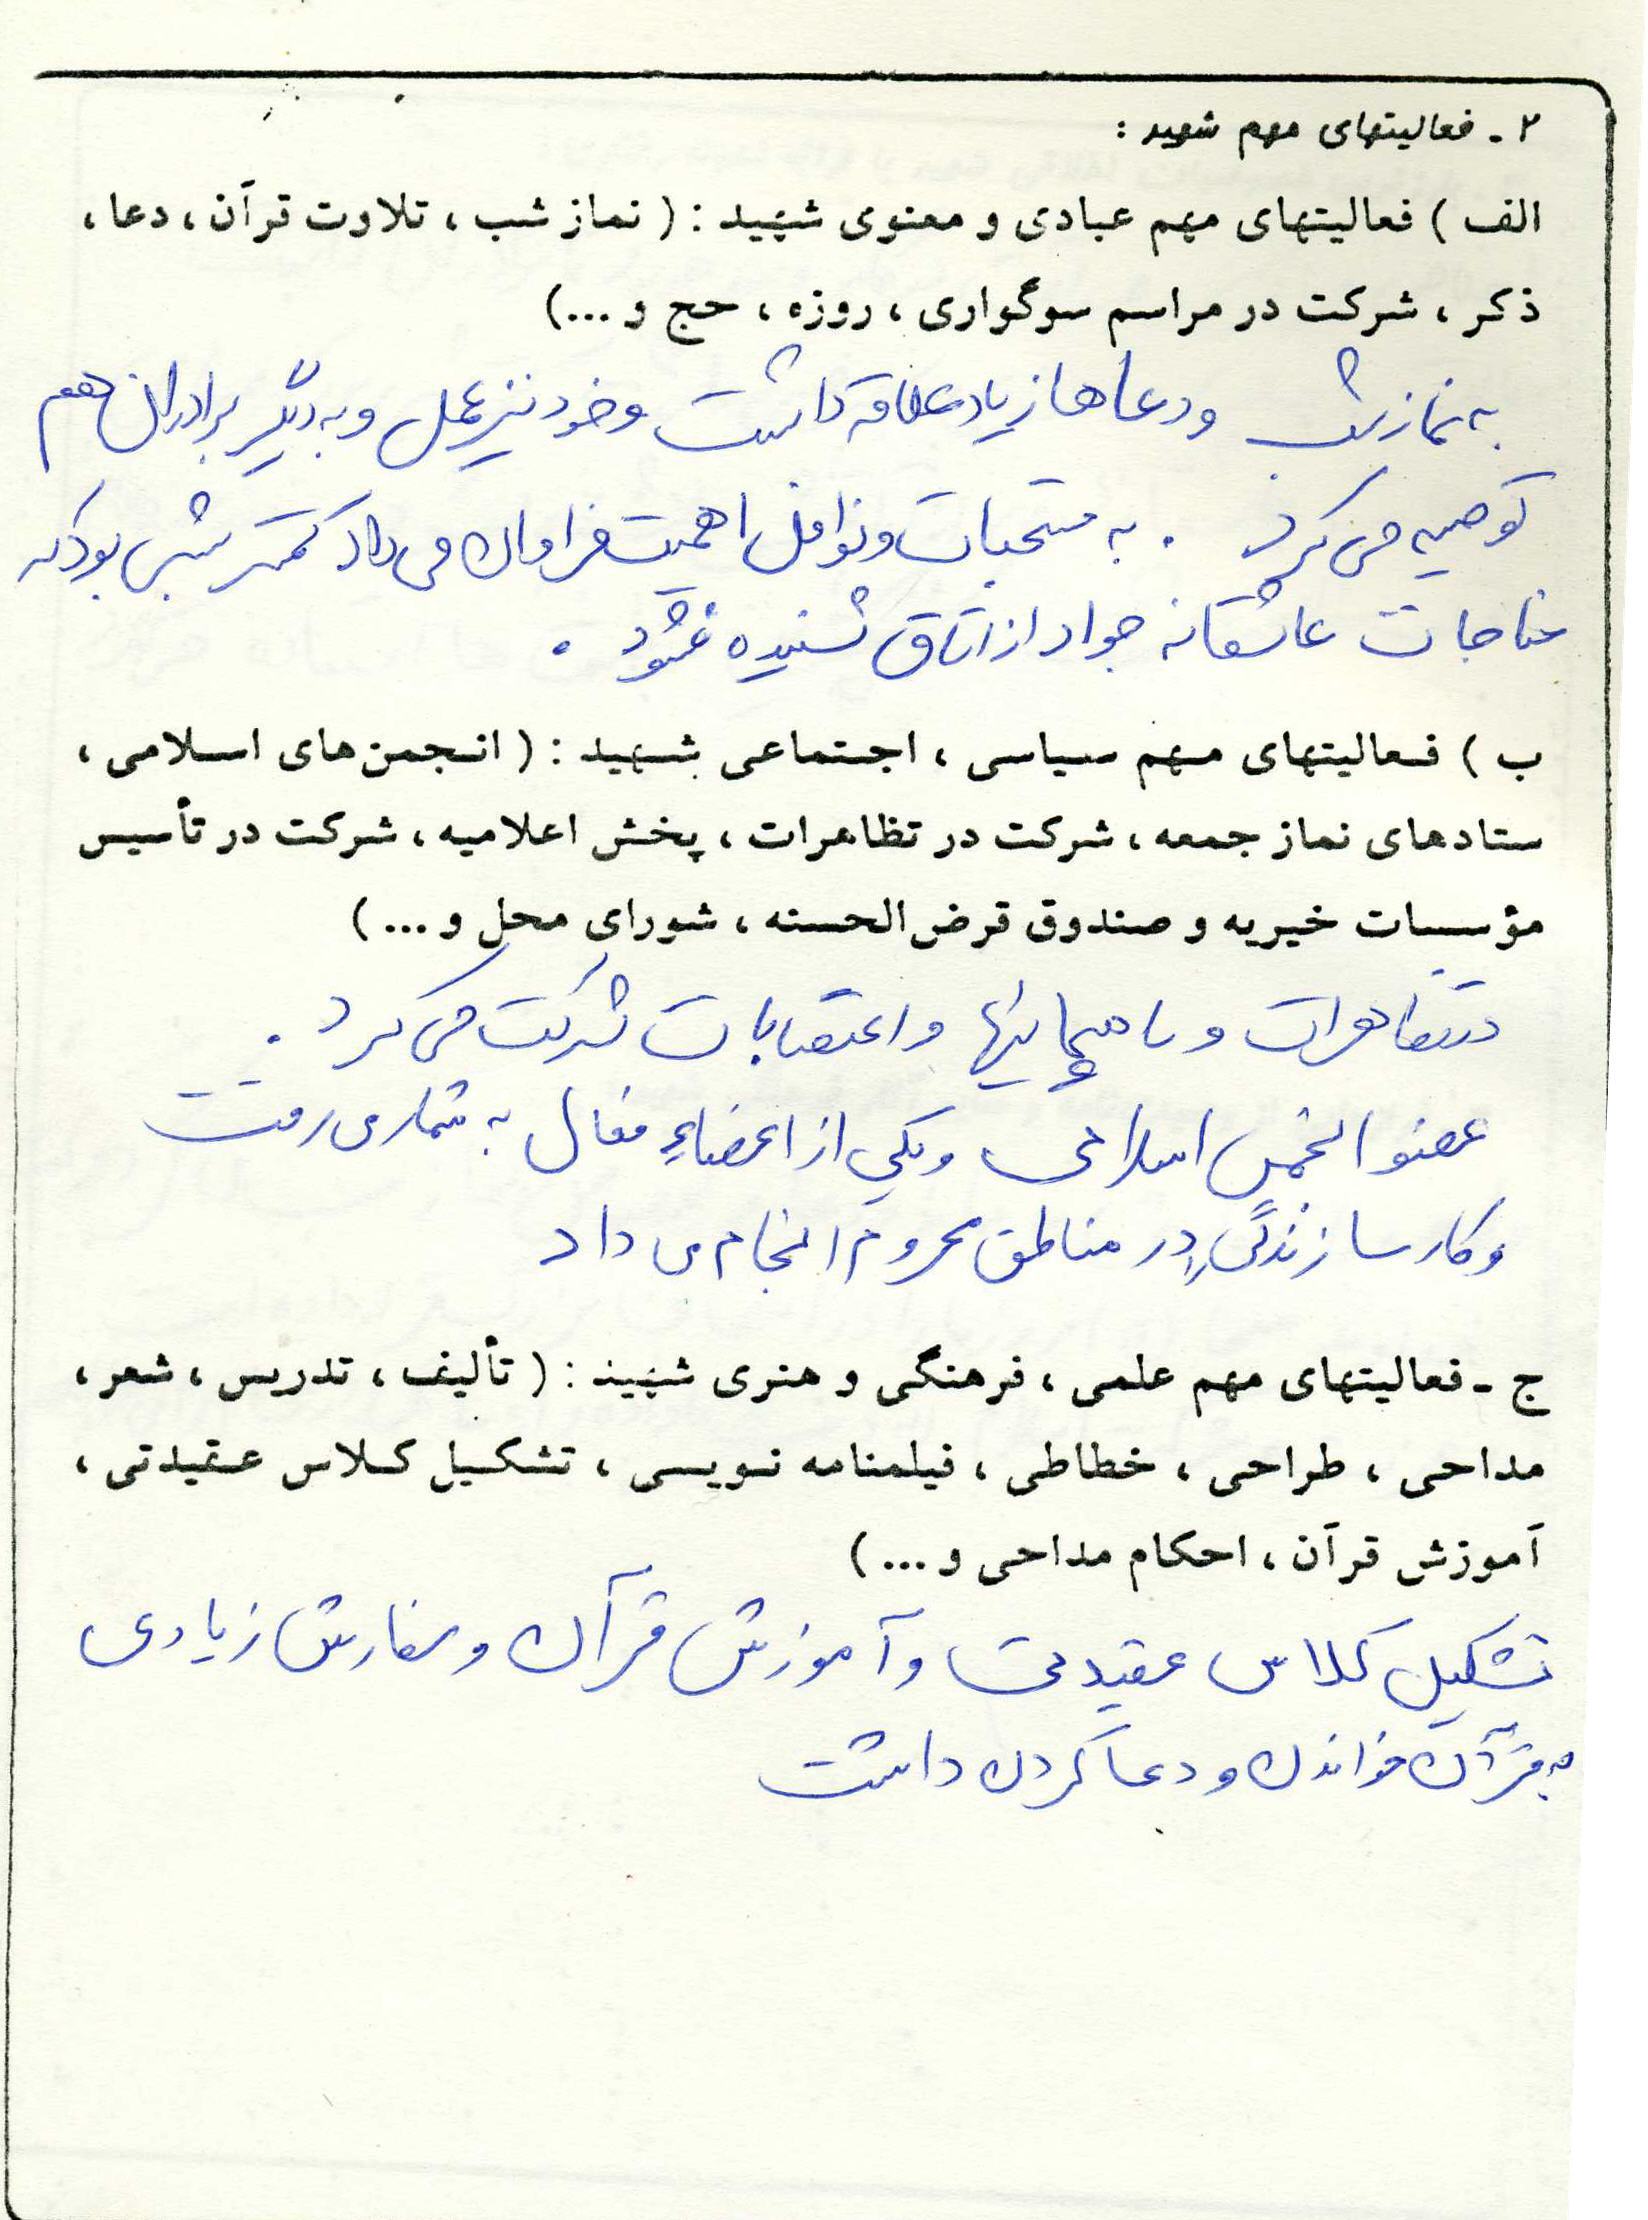 ۲ - فعالیتهای مهم شهید :
الف ) فعالیتهای مهم عبادی و معنوی شهید : ( نماز شب ، تلاوت قرآن ، دعا ،
ذکر ، شرکت در مراسم سوگواری ، روزه ، حج و ...)
به نماز شب و دعاها زیاد علاقه داشت و خود نیز عمل و به دیگر برادران هم
توصیه می کرد . به مستحبات و نوافل اهمیت فراوان می داد کمتر شبی بود که
مناجات عاشقانه جواد از اتاق شنیده نمشود .
ب ) فعالیتهای مهم سیاسی ، اجتماعی شهید : ( انجمن‌های اسلامی ،
ستادهای نماز جمعه ، شرکت در تظاهرات ، پخش اعلامیه ، شرکت در تأسیس
مؤسسات خیریه و صندوق قرض الحسنه ، شورای محل و ... )
در تظاهرات و راهپیمائیها و اعتصابات شرکت می کرد .
عضو انجمن اسلامی و یکی از اعضاء فعال به شمار می رفت
و کار سازندگی در مناطق محروم انجام می داد
ج - فعالیتهای مهم علمی ، فرهنگی و هنری شهید : ( تألیف ، تدریس ، شعر ،
مداحی ، طراحی ، خطاطی ، فیلمنامه نویسی ، تشکیل کلاس عقیدتی ،
آموزش قرآن ، احکام مداحی و ... )
تشکیل کلاس عقیدتی و آموزش قرآن و سفارش زیادی
به قرآن خواندن و دعا کردن داشت